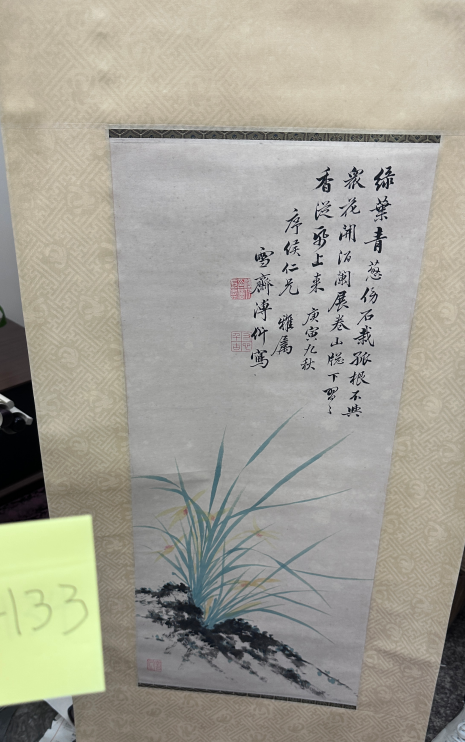 綠葉青葱傍石栽孤根不與
衆花開酒闌展卷山牕下習〻
香從乖上來 庚寅九秋
序侯仁兄 雅屬
雪齋溥伒寫
133